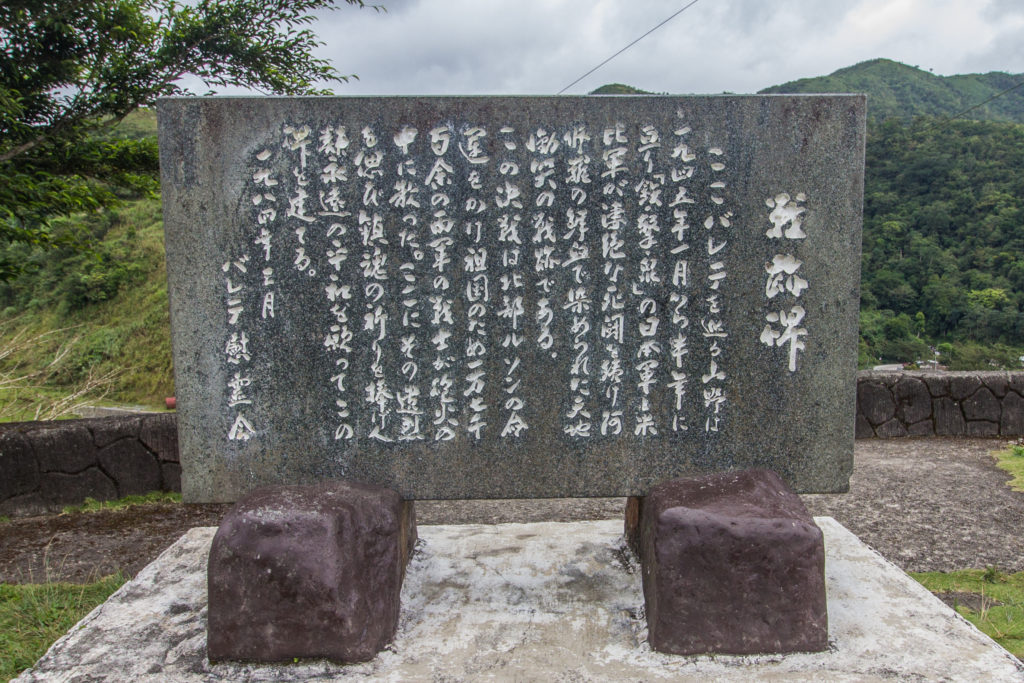 戦跡碑
ここバレテを巡る山野は
一九四五年一月から半年に
亘り「鉄撃泉」の日本軍米
比軍が凄絶な死闘を続け
の鮮血で染められた天地
慟哭の戦跡である。
この決戦は北部ルソンの命
運をかけ祖国のため一万五千
百余の両軍の戦士が砲火の
中に散った。ここにその遺烈
を偲び鎮魂の祈りを捧げ人
類永遠の平和を願ってこの
碑を建てる。
一九八四年三月
バレテ慰霊会